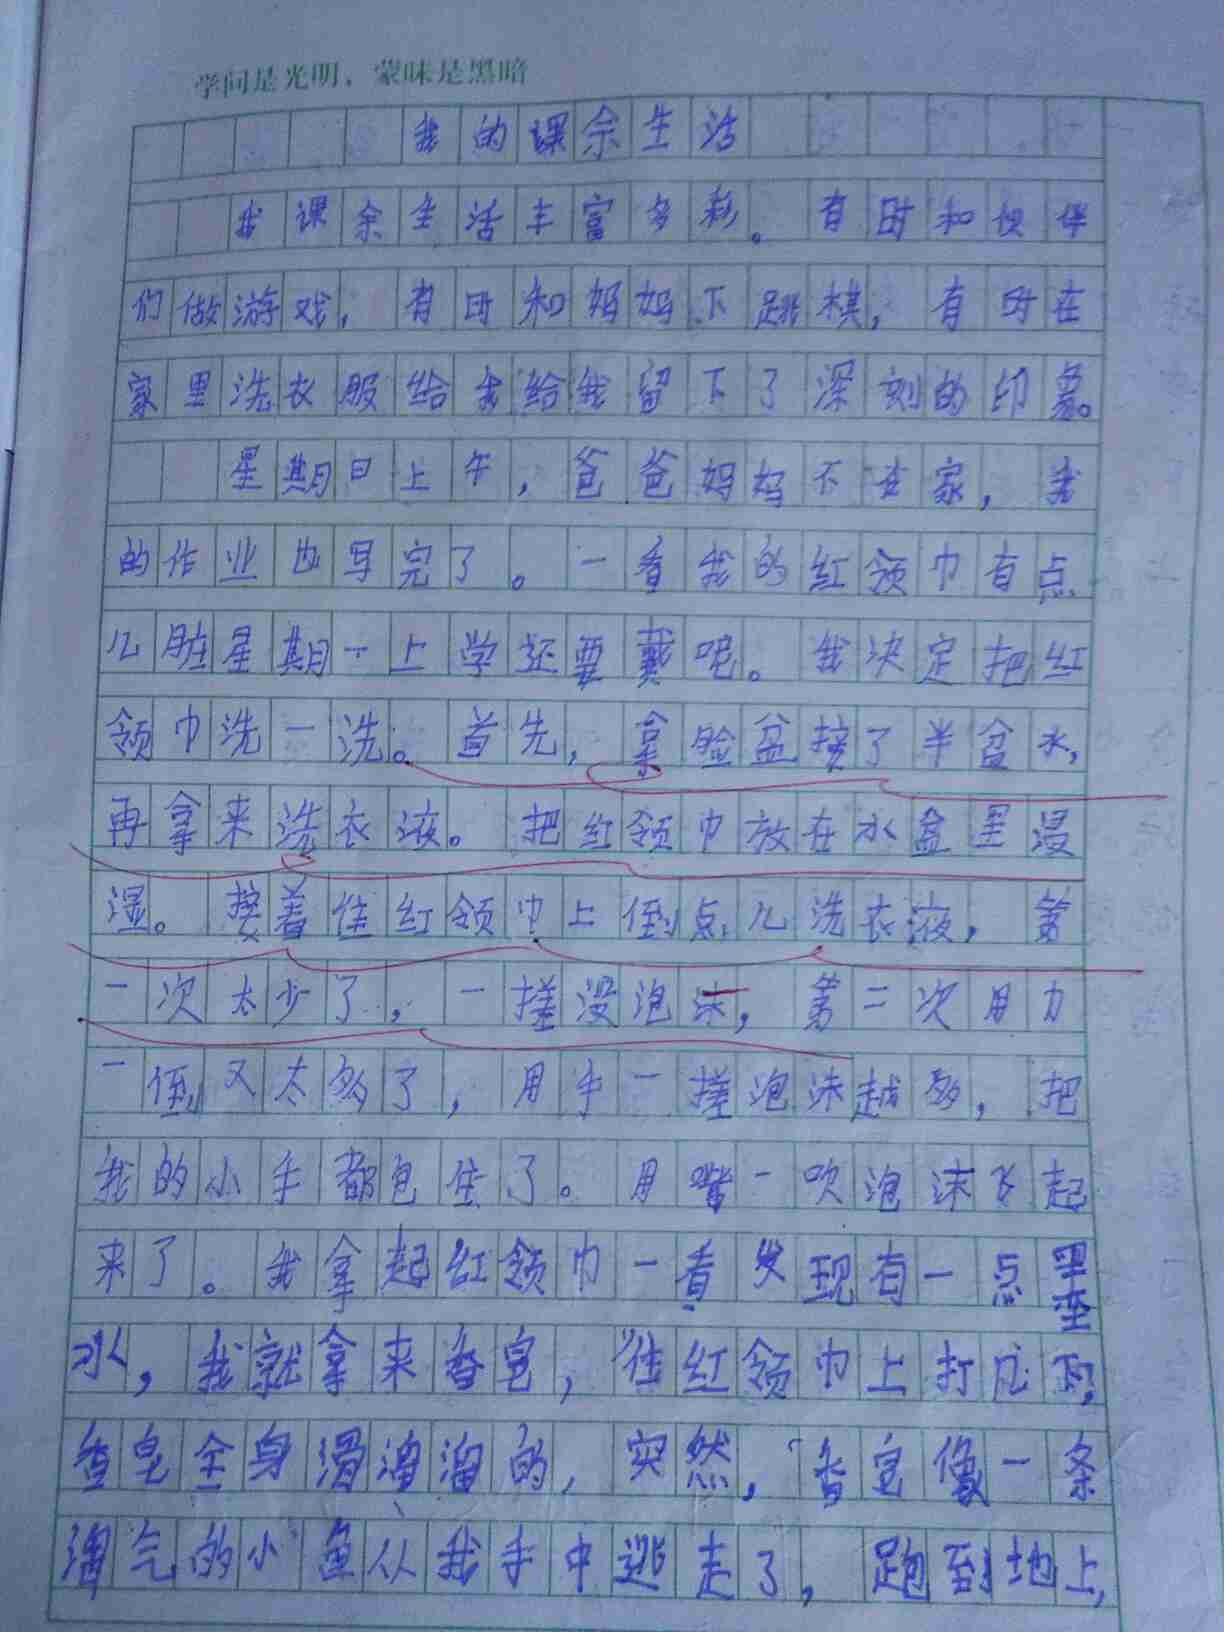 学问是光明，蒙昧是黑暗
我的课余生活
我课余生活丰富多彩。有时和伙伴
们做游戏，有时和妈妈下跳棋，有时在
家里洗衣服给我给我留下了深刻的印象。
星期日上午，爸爸妈妈不在家，我
的作业也写完了。一看我的红领巾有点
儿脏星期一上学还要戴呢。我决定把红
领巾洗一洗。首先，拿脸盆接了半盆水，
再拿来洗衣液。把红领巾放在水盆里浸
湿。接着往红领巾上倒点儿洗衣液，第
一次太少了，一搓没泡沫，第二次用力
一倒又太多了，用手一搓泡沫越多，把
我的小手都包住了。用嘴一吹泡沫飞起
来了。我拿起红领巾一看发现有一点墨
水，我就拿来香皂，往红领巾上打
香皂全身滑溜溜的，突然，香皂像一条
淘气的小鱼从我手中逃走了，跑到地上，